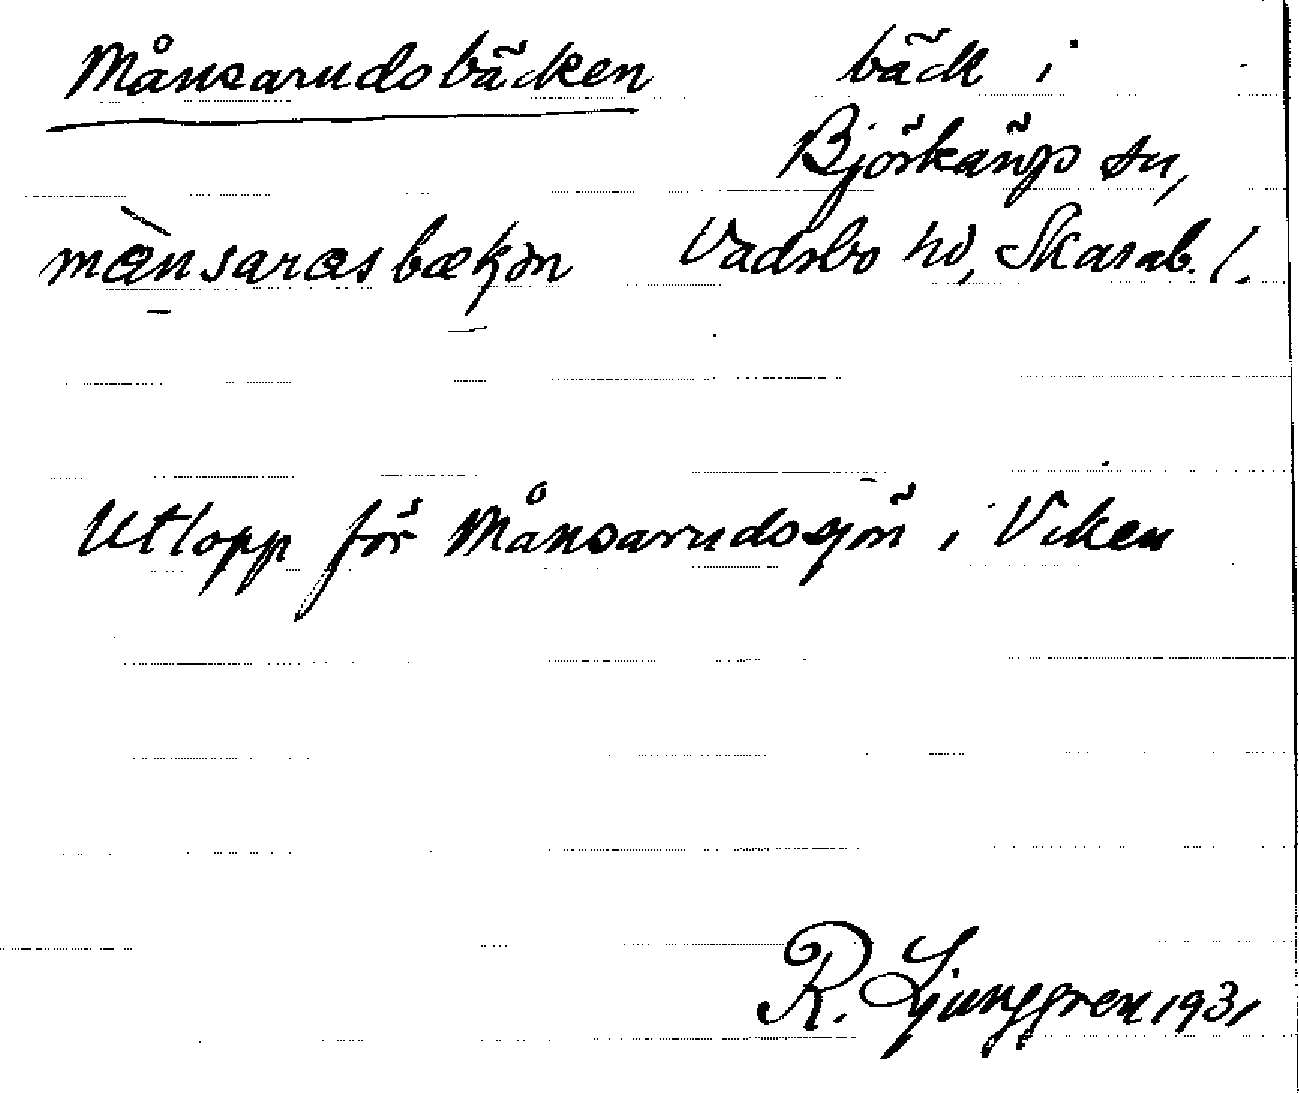 Månsarudsbäcken bäck i
Björkängs sn,
mænsarasbækən Vadsbo hd, Skarab. l.
Utlopp för Månsarudssjön i Viken
R. Ljunggren 1931